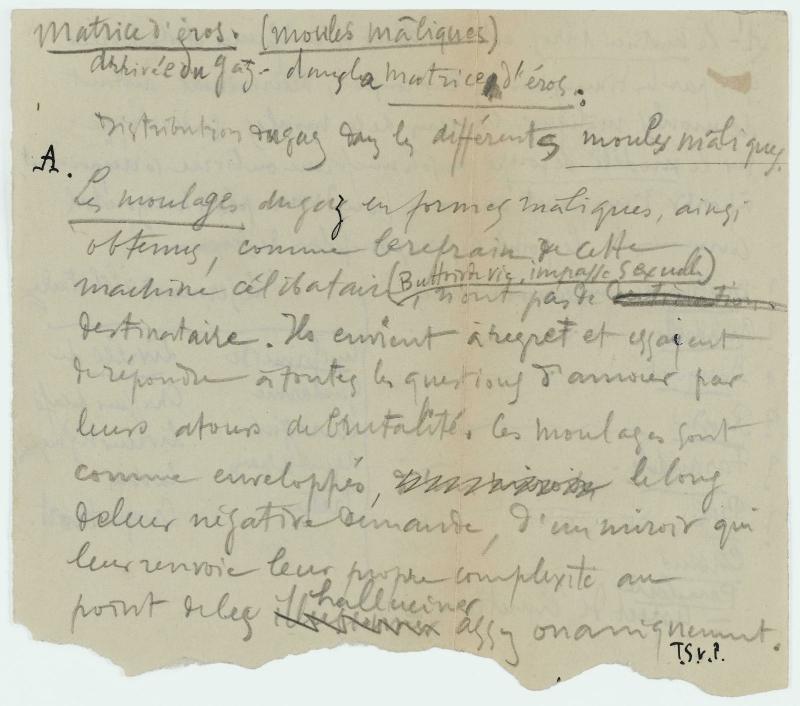 matrice d'éros. (moules mâliques)
arrivée du gaz - dans la matrice d'éros.
Distribution du gaz dans les différents moules mâliques.
A.
Les moulages du gaz en formes mâliques, ainsi
obtenus, comme le refrain de cette
machine célibataire (Buttoir de vie, impasse sexuelle)
, n'ont pas de
destinataire. Ils envient à regret et essayent
de répondre à toutes les questions d'amour par
leurs atours de brutalité. Ces moulages sont
comme enveloppés, le long
de leur négative demande, d'un miroir qui
leur renvoie leur propre complexité au
point de les halluciner assez onaniquement.
T.S.v.P.